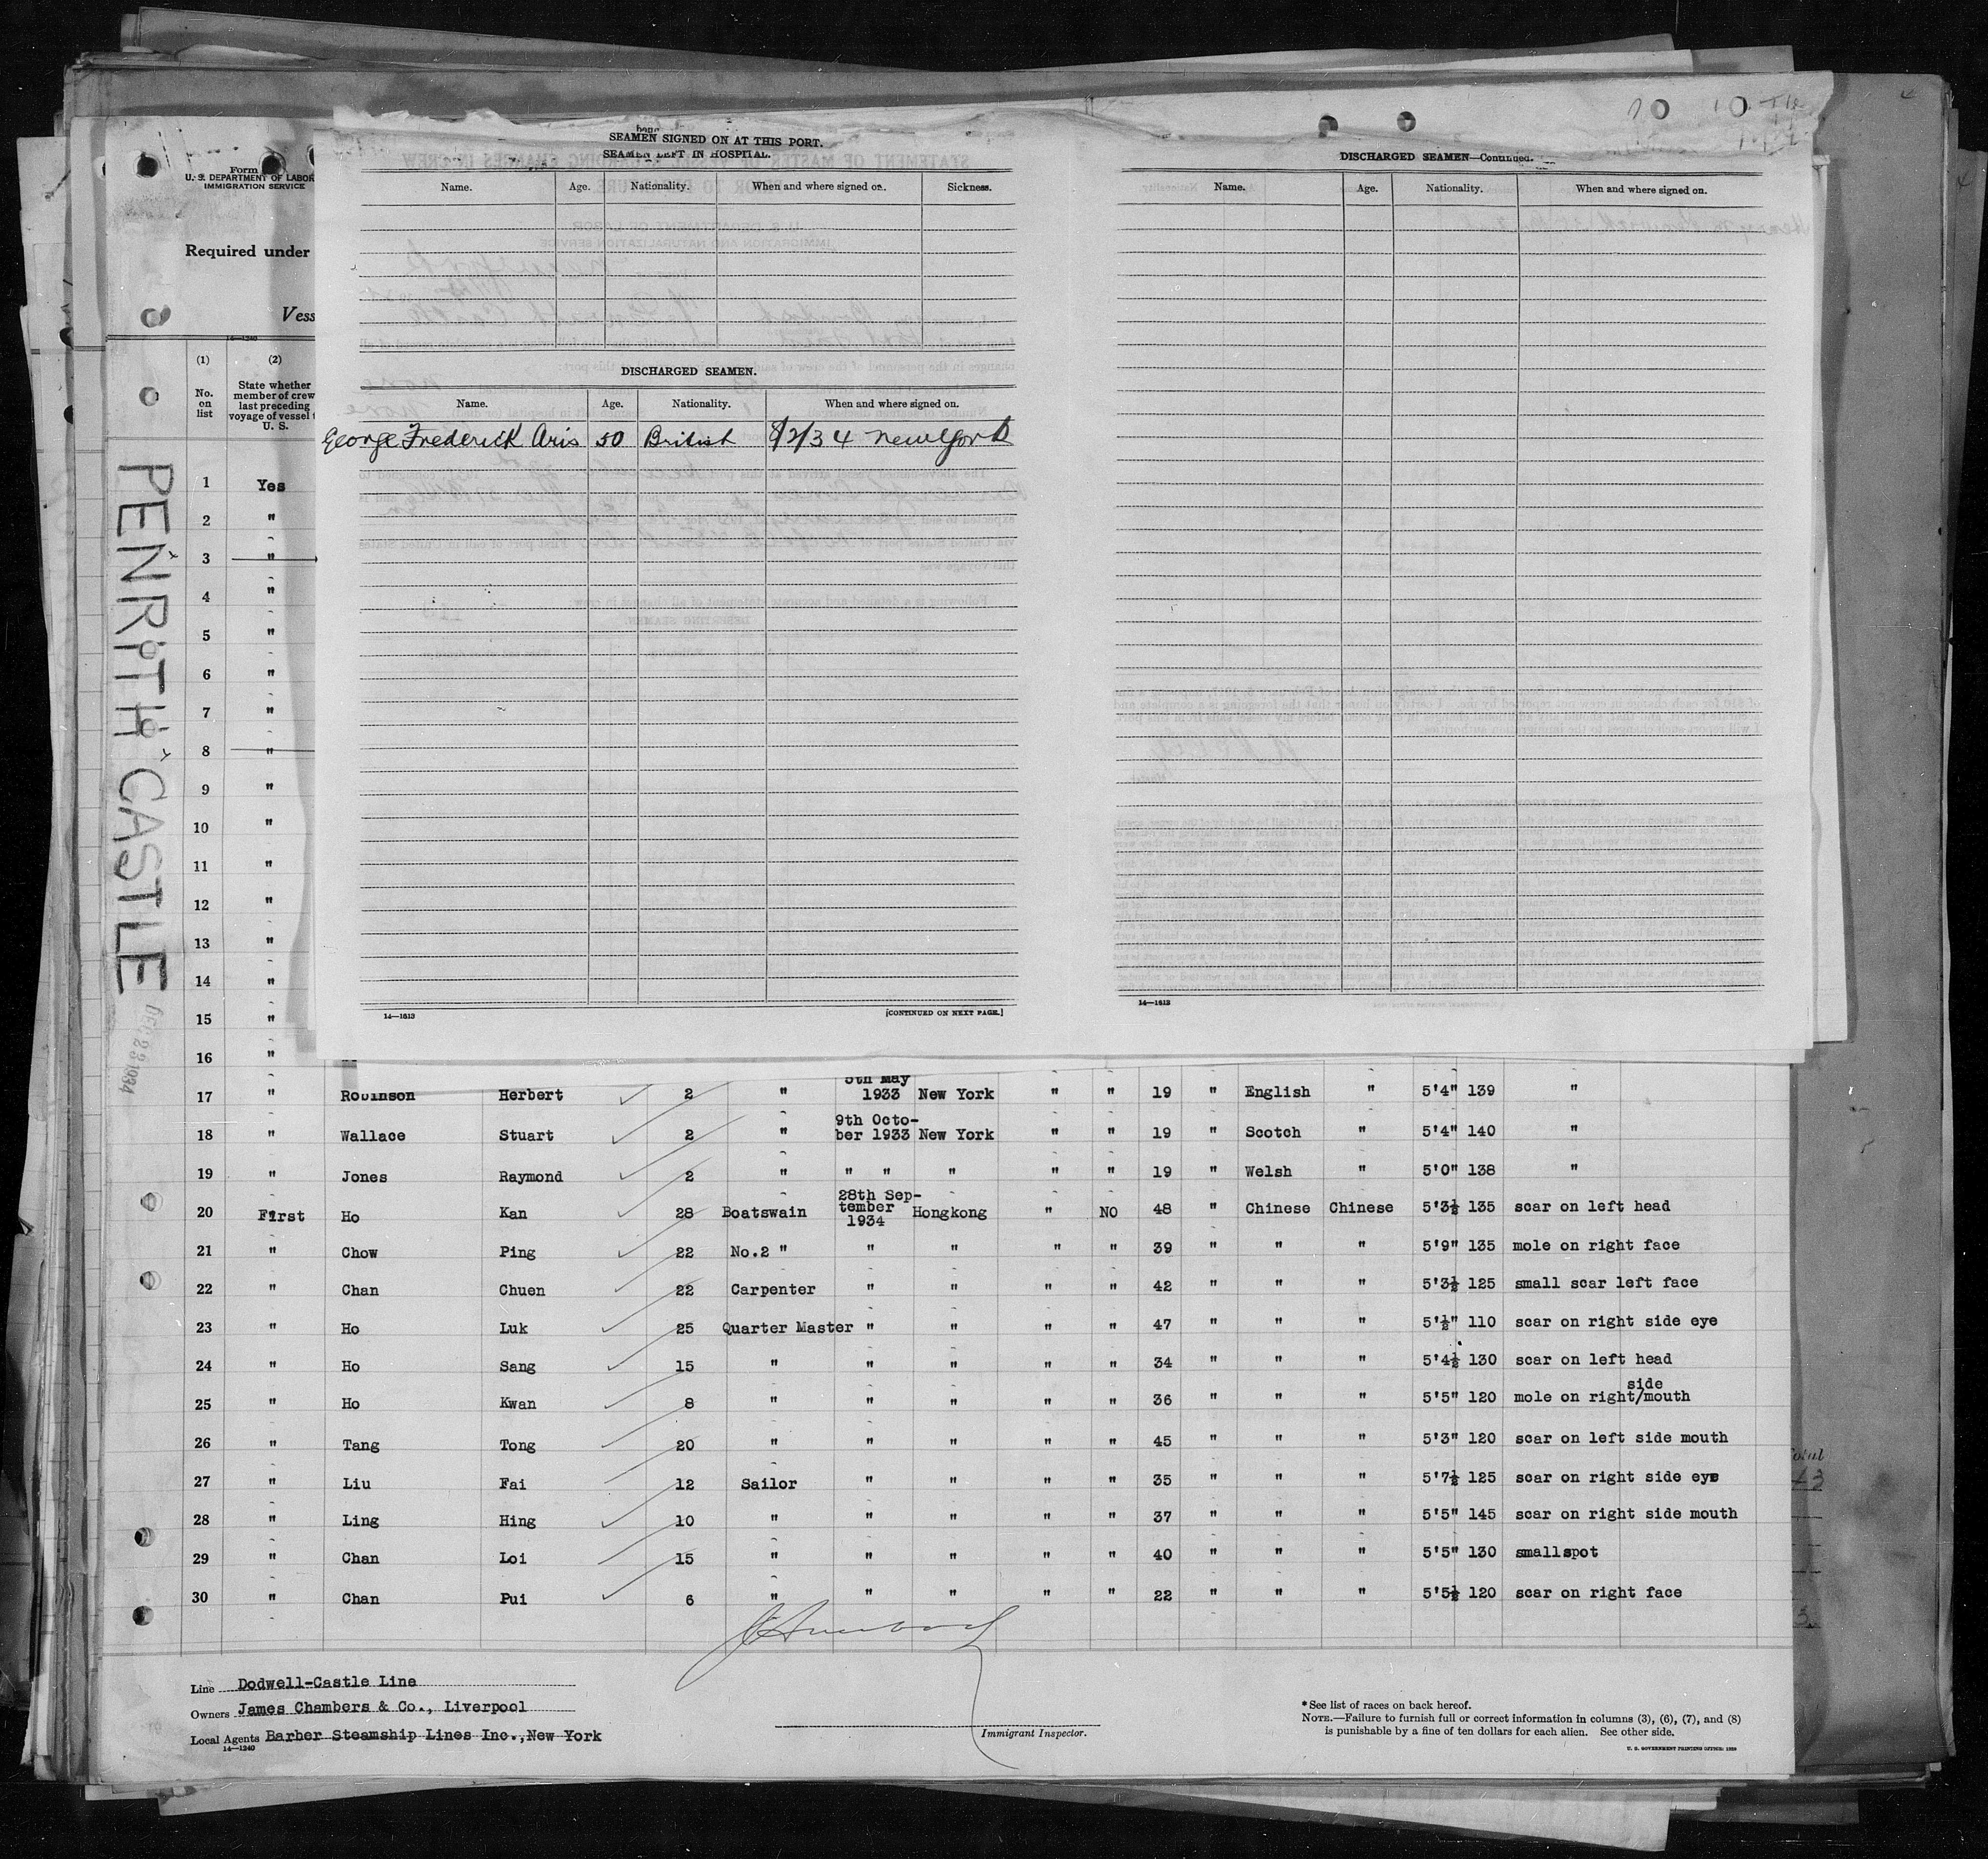 SEAMEN SIGNED ON AT THIS PORT.
SEAMEN LEFT IN HOSPITAL.
Name. Age. Nationality. When and where signed on. Sickness.
DISCHARGED SEAMEN.
Name. Age. Nationality. When and where signed on.
George Frederick Aris 50 British 8/2/34 New York
14—1513 [CONTINUED ON NEXT PAGE.]
DISCHARGED SEAMEN—Continued.
Name. Age. Nationality. When and where signed on.
14—1513
Form
U. S. DEPARTMENT OF LABOR
IMMIGRATION SERVICE
Required under
Vess
14—1240
(1) (2)
No. on list
State whether member of crew last preceding voyage of vessel U. S.
PENRITH CASTLE
DEC 23 1934
1 Yes
2 "
3 "
4 "
5 "
6 "
7 "
8 "
9 "
10 "
11 "
12 "
13 "
14 "
15 "
16 "
17 " Robinson Herbert 2 " 5th May 1933 New York " " 19 " English " 5'4" 139 "
18 " Wallace Stuart 2 " 9th October 1933 New York " " 19 " Scotch " 5'4" 140 "
19 " Jones Raymond 2 " " " " " " 19 " Welsh " 5'0" 138 "
20 First Ho Kan 28 Boatswain 28th September 1934 Hongkong " NO 48 " Chinese Chinese 5'3½ 135 scar on left head
21 " Chow Ping 22 No.2 " " " " " 39 " " " 5'9" 135 mole on right face
22 " Chan Chuen 22 Carpenter " " " " 42 " " " 5'3½ 125 small scar left face
23 " Ho Luk 25 Quarter Master " " " " 47 " " " 5'½" 110 scar on right side eye
24 " Ho Sang 15 " " " " " 34 " " " 5'4½ 130 scar on left head
25 " Ho Kwan 8 " " " " " 36 " " " 5'5" 120 mole on right/side mouth
26 " Tang Tong 20 " " " " " 45 " " " 5'3" 120 scar on left side mouth
27 " Liu Fai 12 Sailor " " " " 35 " " " 5'7½ 125 scar on right side eye
28 " Ling Hing 10 " " " " " 37 " " " 5'5" 145 scar on right side mouth
29 " Chan Loi 15 " " " " " 40 " " " 5'5" 130 smallspot
30 " Chan Pui 6 " " " " " 22 " " " 5'5½ 120 scar on right face
Line Dodwell-Castle Line
Owners James Chambers & Co., Liverpool
Local Agents Barber Steamship Lines Inc.,New York
14—1240
Immigrant Inspector.
*See list of races on back hereof.
NOTE.—Failure to furnish full or correct information in columns (3), (6), (7), and (8)
is punishable by a fine of ten dollars for each alien. See other side.
U. S. GOVERNMENT PRINTING OFFICE: 1929